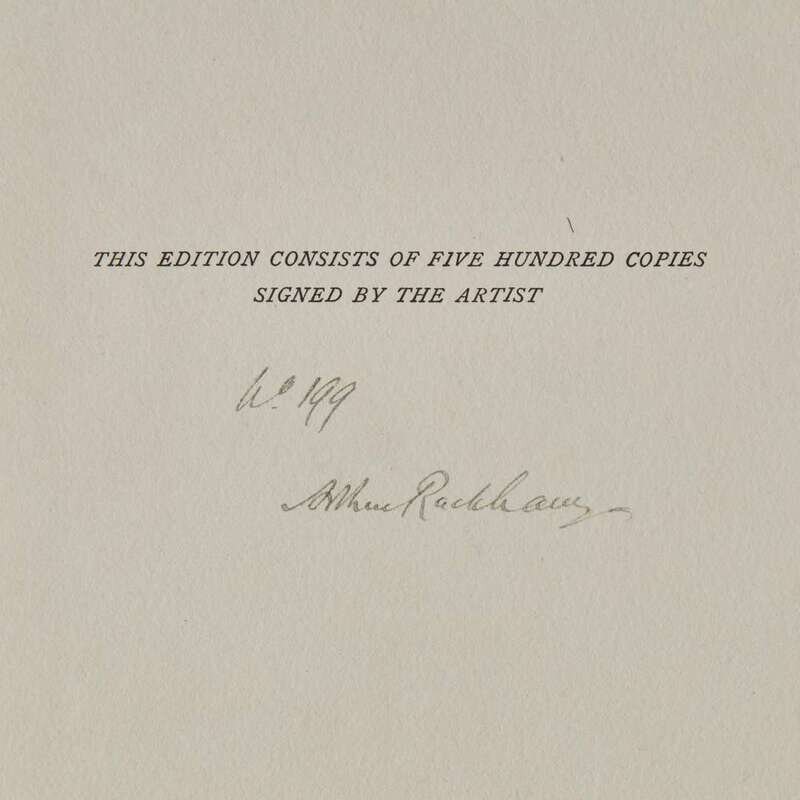 THIS EDITION CONSISTS OF FIVE HUNDRED COPIES
SIGNED BY THE ARTIST
No 199
Arthur Rackham